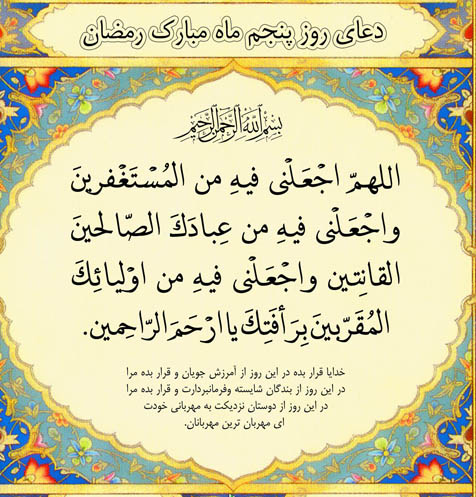 دعای روز پنجم ماه مبارک رمضان
بسم الله الرحمن الرحیم
اللهمّ اجْعَلْنی فیهِ من المُسْتَغْفرینَ
واجْعَلْنی فیهِ من عِبادَكَ الصّالحینَ
القانِتین واجْعَلْنی فیهِ من اوْلیائِكَ
المُقَرّبینَ بِرَأفَتِكَ یا ارْحَمَ الرّاحِمین.
خدایا قرار بده در این روز از آمرزش جویان و قرار بده مرا
در این روز از بندگان شایسته وفرمانبردارت و قرار بده مرا
در این روز از دوستان نزدیکت به مهربانی خودت
ای مهربان ترین مهربانان.